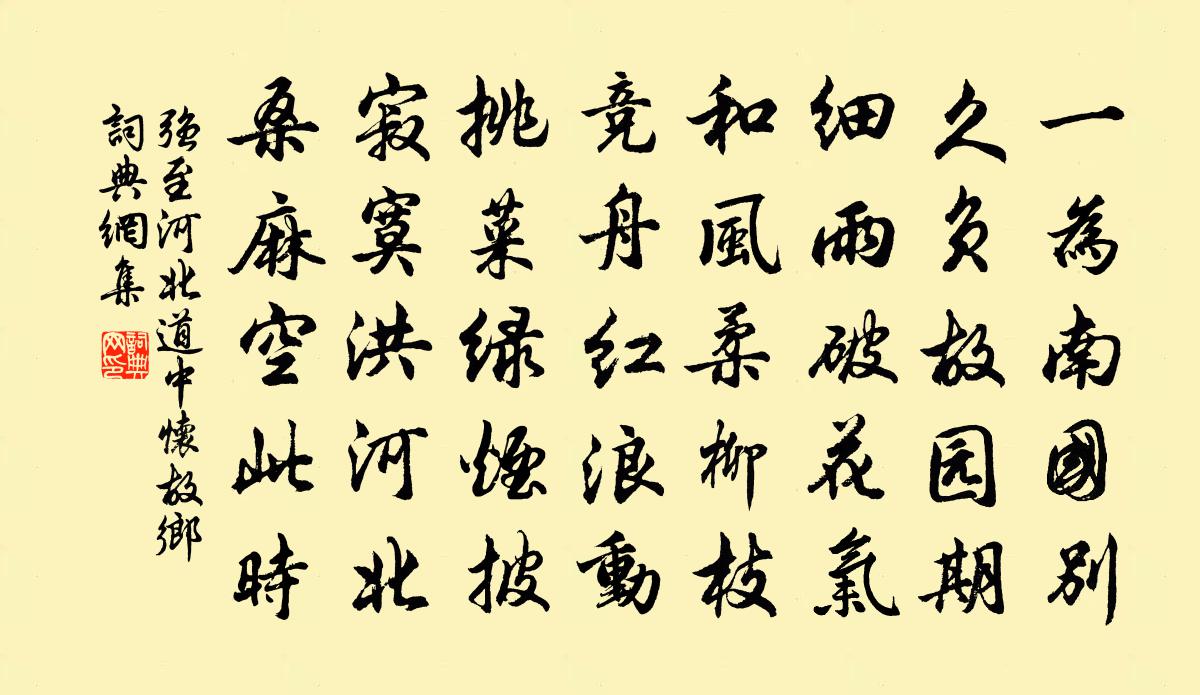 一為南國別
久负故园期
細雨破花氣
和風柔柳枝
竞舟红浪動
挑菜绿煙披
寂寞洪河北
桑麻空此時
強至河北道中懷故鄉
詞典網集
詞典网印